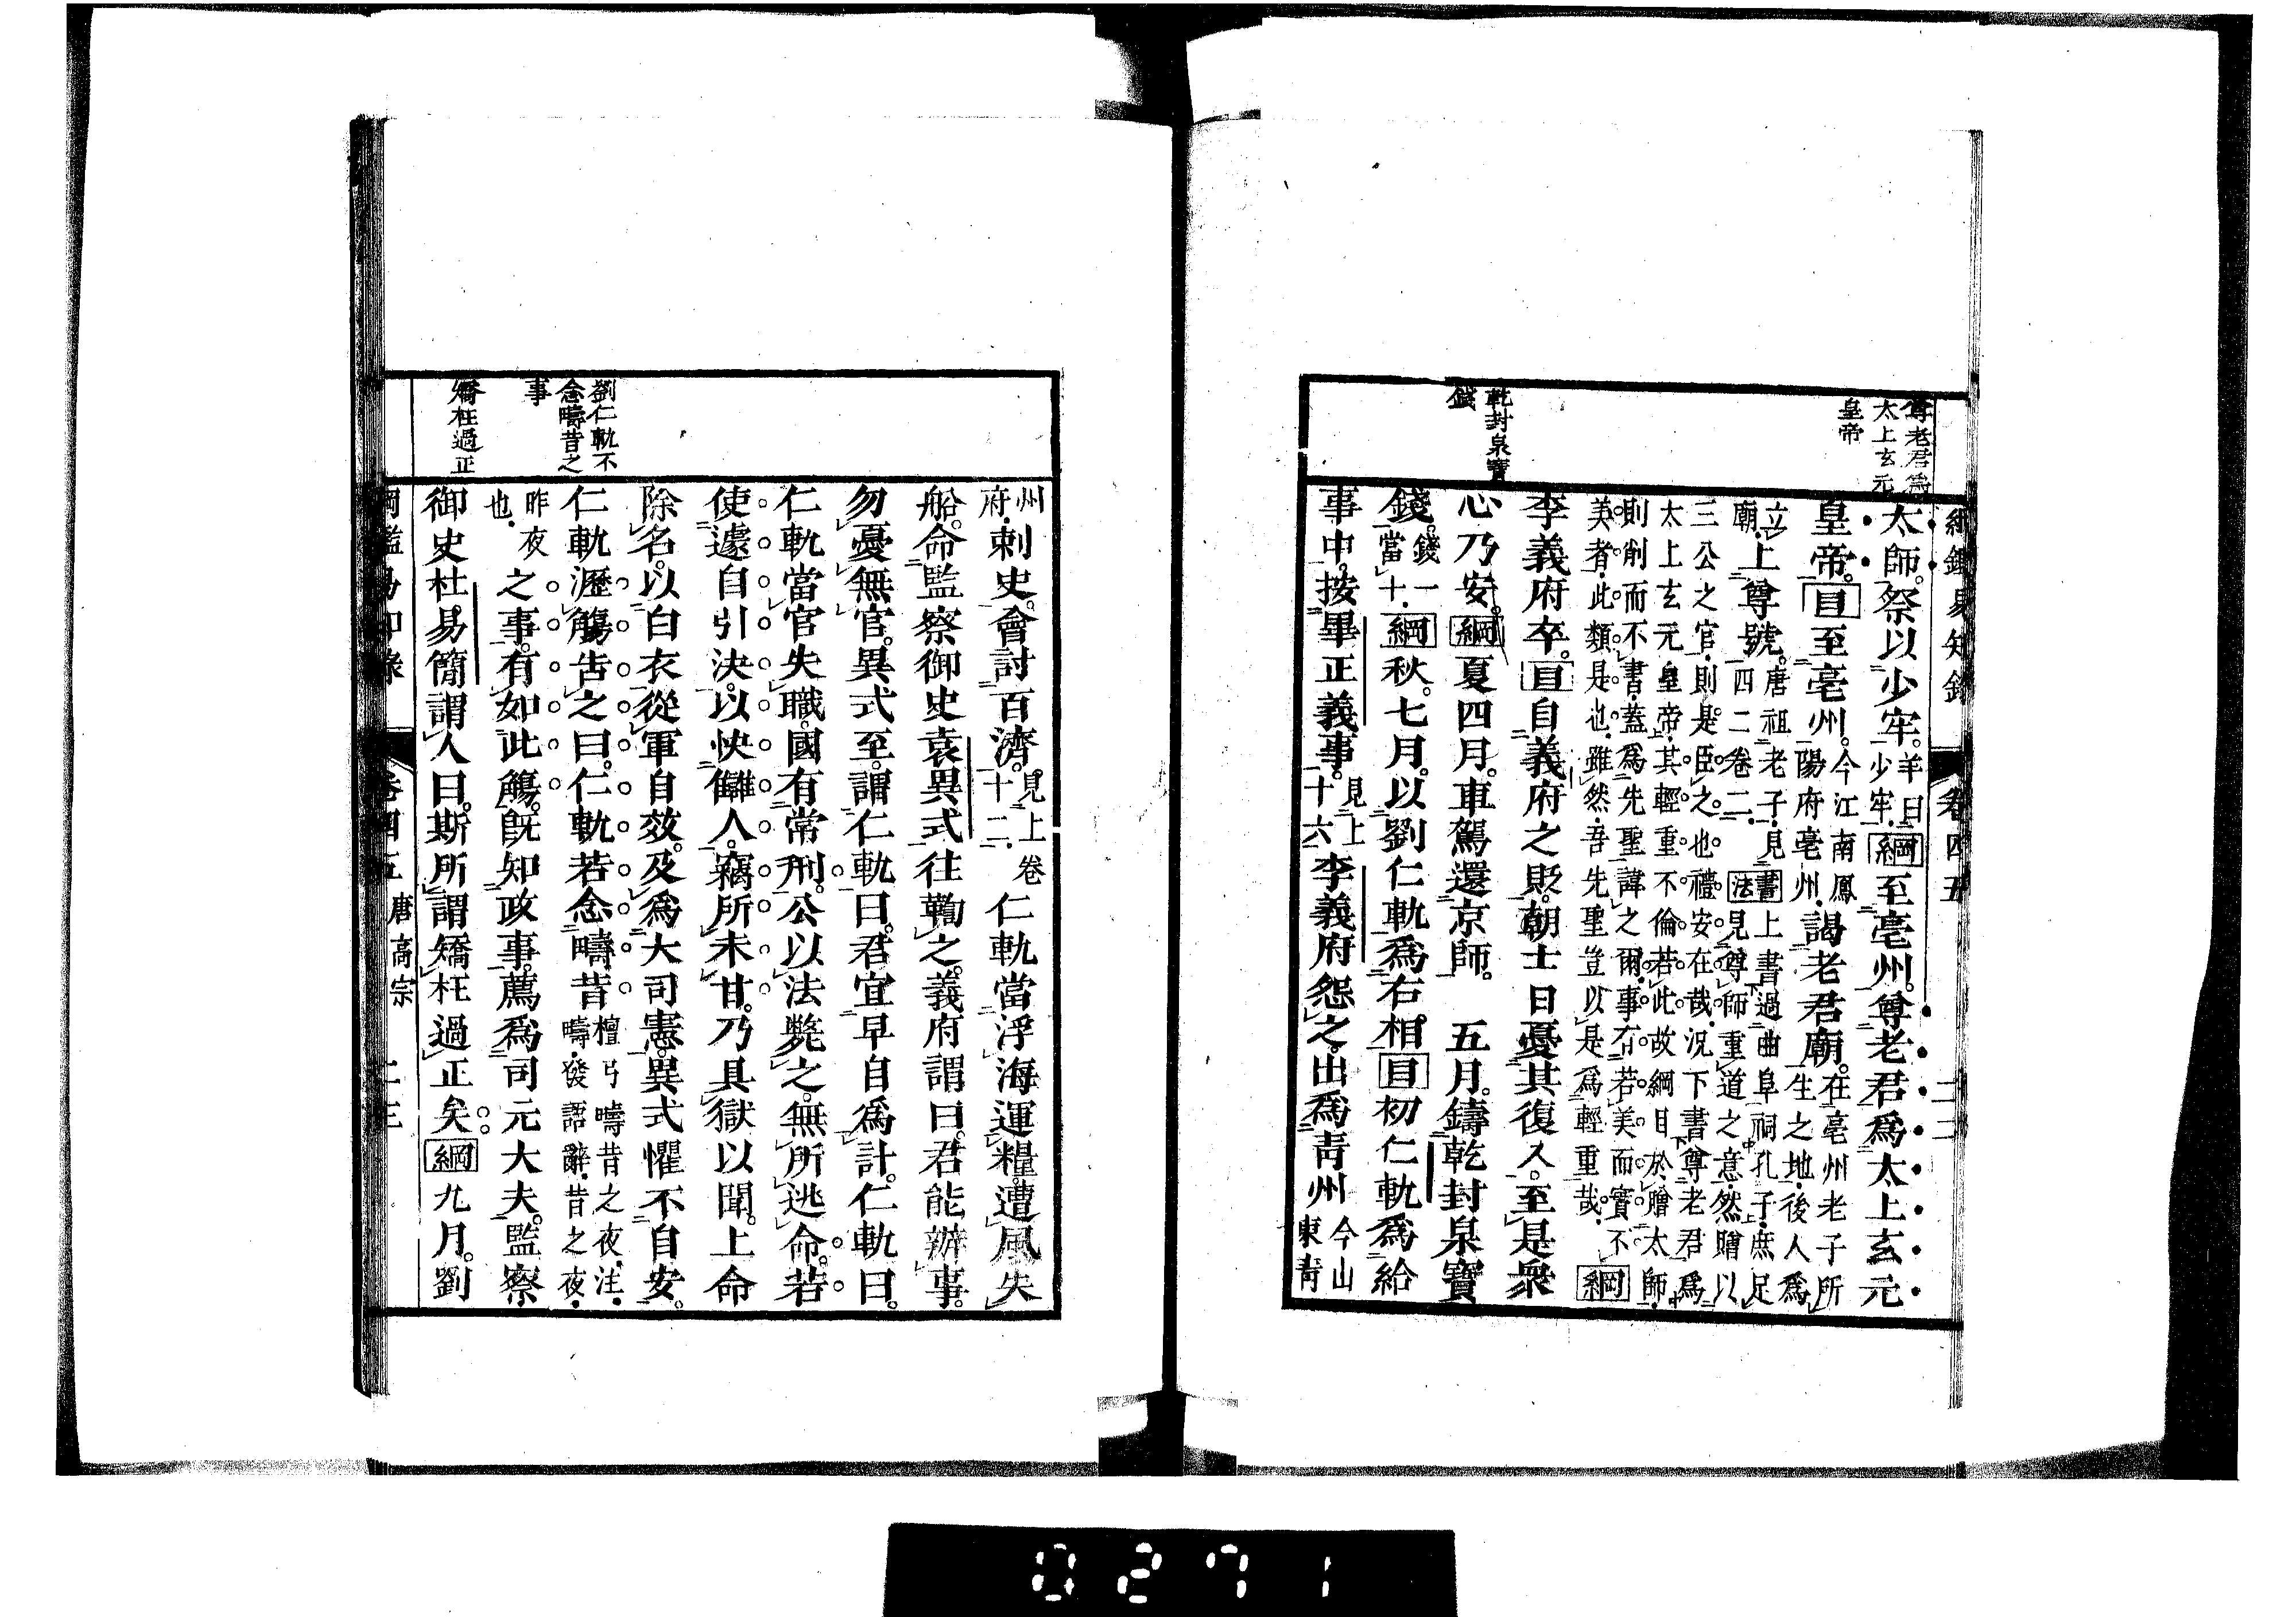 綱鑑易知錄 卷四五 二二
尊老君爲
太上玄元
皇帝
乾封泉寶
錢
太師祭以少牢。羊曰少牢。綱至亳州。尊老君爲太上玄元
皇帝。目至亳州。今江南鳳陽府亳州。謁老君廟。在亳州老子所生之地。後人爲
立廟。上尊號。唐祖老子。見四二卷二。書法上書過曲阜祠孔子。庶足見尊師重道之意。然贈以
三公之官。則是臣之也。禮安在哉。況下書尊老君爲
太上玄元皇帝。其輕重不倫若此。故綱目於贈太師。
則削而不書。蓋爲先聖諱之爾。事有若美而實不
美者。此類是也。雖然。吾先聖豈以是爲輕重哉。綱
李義府卒。目自義府之貶。朝士日憂其復入。至是衆
心乃安。綱夏四月。車駕還京師。 五月。鑄乾封泉寶
錢。錢一當十。綱秋。七月。以劉仁軌爲右相。目初仁軌爲給
事中。按畢正義事。見上十六李義府怨之。出爲青州今山東青
劉仁軌不
念疇昔之
事
矯枉過正
州府。刺史。會討百濟。見上卷十二。仁軌當浮海運糧。遭風失
船。命監察御史袁異式往鞫之。義府謂曰。君能辦事。
勿憂無官。異式至。謂仁軌曰。君宜早自爲計。仁軌曰。
仁軌當官失職。國有常刑。公以法斃之。無所逃命。若
使遽自引決。以快讎人。竊所未甘。乃具獄以聞。上命
除名。以白衣從軍自效。及爲大司憲。異式懼不自安。
仁軌瀝觴告之曰。仁軌若念疇昔檀弓疇昔之夜。注。疇。發語辭。昔之夜。
昨夜也。之事。有如此觴。旣知政事。薦爲司元大夫。監察
御史杜易簡謂人曰。斯所謂矯枉過正矣。綱九月。劉
綱鑑易知錄 卷四五 唐高宗 二三
0271